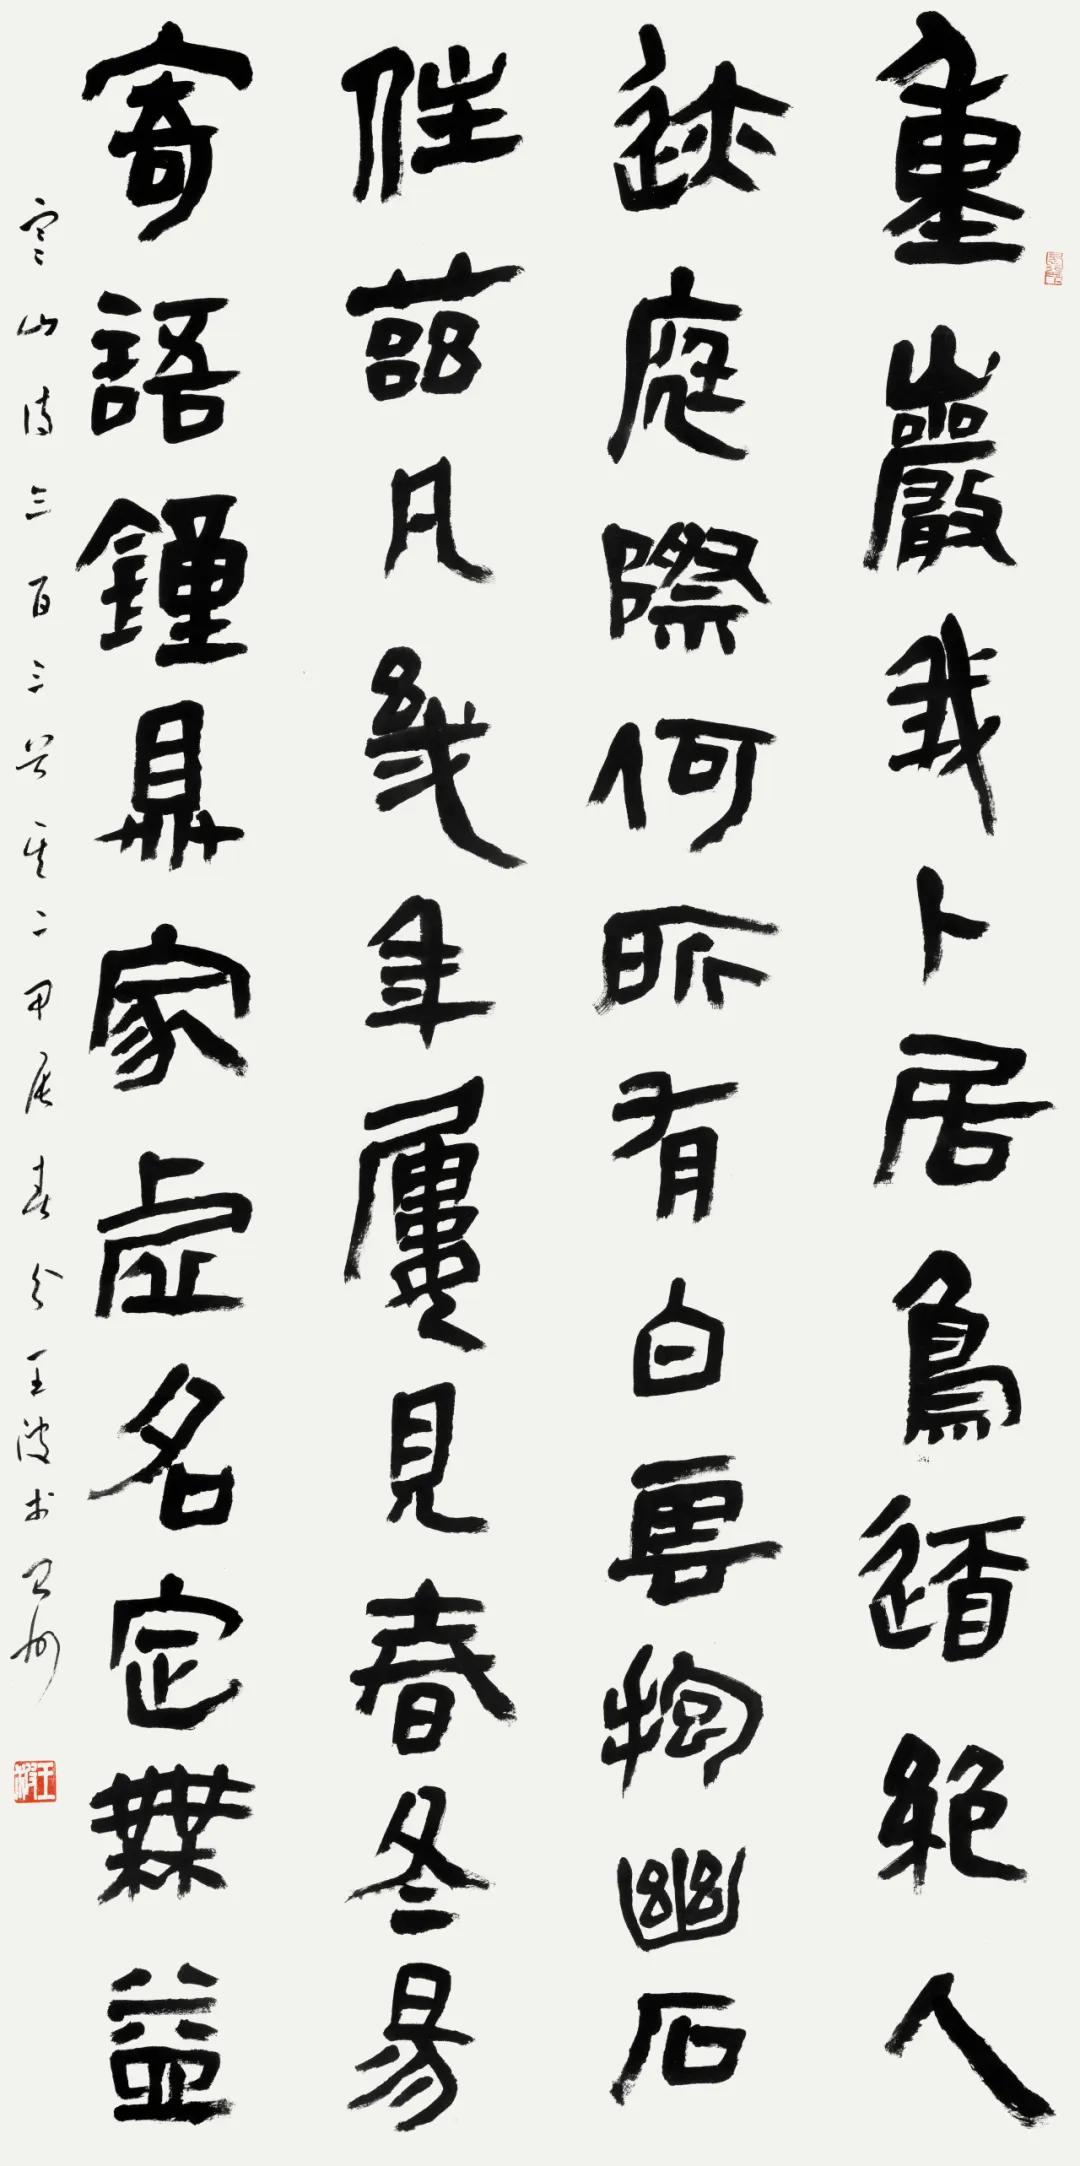 重巖我卜居鳥道絕人
迹庭際何所有白雲抱幽石
住茲凡幾年屢見春冬易
寄語鐘鼎家虛名定無益
寒山詩三百三首其二甲辰春分王波